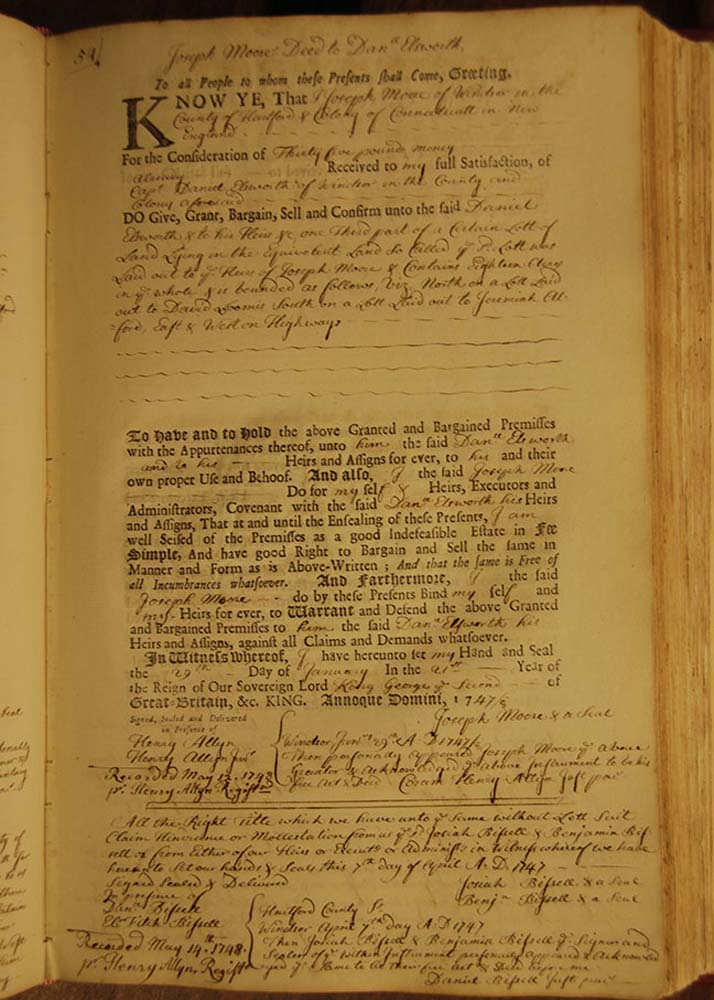 54
Joseph Moore's Deed to Danll. Elsworth
To all People to whom these Presents shall Come, Greeting.
KNOW YE, That I Joseph Moore of Windsor in the
County of Hartford & Colony of Connecticutt in New
England
For the Consideration of Thirty five pounds money
already Received to my full Satisfaction, of
Capt. Daniel Elsworth of Windsor in the County and
Colony aforesaid
DO Give, Grant, Bargain, Sell and Confirm unto the said Daniel
Elsworth & to his Heirs &c, one Third part of a Certain Lott of
Land Lying in the Equivolent Land So Called ye Sd. Lott was
Laid out to ye Heirs of Joseph Moore & Contains Eighteen Acres
in ye whole & is bounded as follows, Viz. North on a Lott Laid
out to David Loomis South on a Lott Laid out to Jeremiah Al-
ford, East & West on Highways
To Have and to Hold the above Granted and Bargained Premisses
with the Appurtenances thereof, unto him the said Danll Elsworth
and to his Heirs and Assigns for ever, to his and their
own proper Use and Behoof. And also, I the said Joseph Moore
Do for my self & Heirs, Executors and
Administrators, Covenant with the said Danll Elsworth his Heirs
and Assigns, That at and until the Ensealing of these Presents, I am
well Seised of the Premisses as a good Indefeasible Estate in Fee
Simple, And have good Right to Bargain and Sell the same in
Manner and Form as is Above-Written; And that the same is Free of
all Incumbrances whatsoever. And Farthermore, I the said
Joseph Moore do by these Presents Bind my self and
my Heirs for ever, to Warrant and Defend the above Granted
and Bargained Premisses to him the said Danll Elsworth his
Heirs and Assigns, against all Claims and Demands whatsoever.
In Witness whereof, I have hereunto set my Hand and Seal
the 29th Day of January In the 21st Year of
the Reign of Our Sovereign Lord King George ye Second of
Great-Britain, &c. KING. Annoque Domini, 1747/8
Joseph Moore & a Seal
Signed, Sealed and Delivered
in Presence of
Henry Allyn
Henry Allyn Junr.
Recorded May 14. 1748
pr. Henry Allyn Registr
Windsor Janry 29th A D 1747/8
Then personally Appeared Joseph Moore ye Above
Grantor & Acknowledged ye above Instrument to be his
free Act & Deed Coram Henry Allyn Just pacs
All the Right Title which we have unto ye Same without Lett Suit
Claim Hinderance or Mollestation from us ye Sd Josiah Bissell & Benjamin Bis
sell or from Either of our Heirs or Executrs or Administrs in Witness whereof we have
hereunto Set our hands & Seals this 7th day of April A. D. 1747
Signed Sealed & Delivered
In presence of
Josiah Bissell & a Seal
Benjn Bissell & a Seal
Danll Bissell
Ebr Fitch Bissell
Recorded May 14th 1748.
pr. Henry Allyn. Registr
Hartford County Ss.
Windsor April 7th day A. D 1747
Then Josiah Bissell & Benjamin Bissell ye Signers and
Sealers of ye within Instrument personally appeared & Acknowled
ged ye Same to be their free Act & Deed before me
Daniel Bissell Just pacs